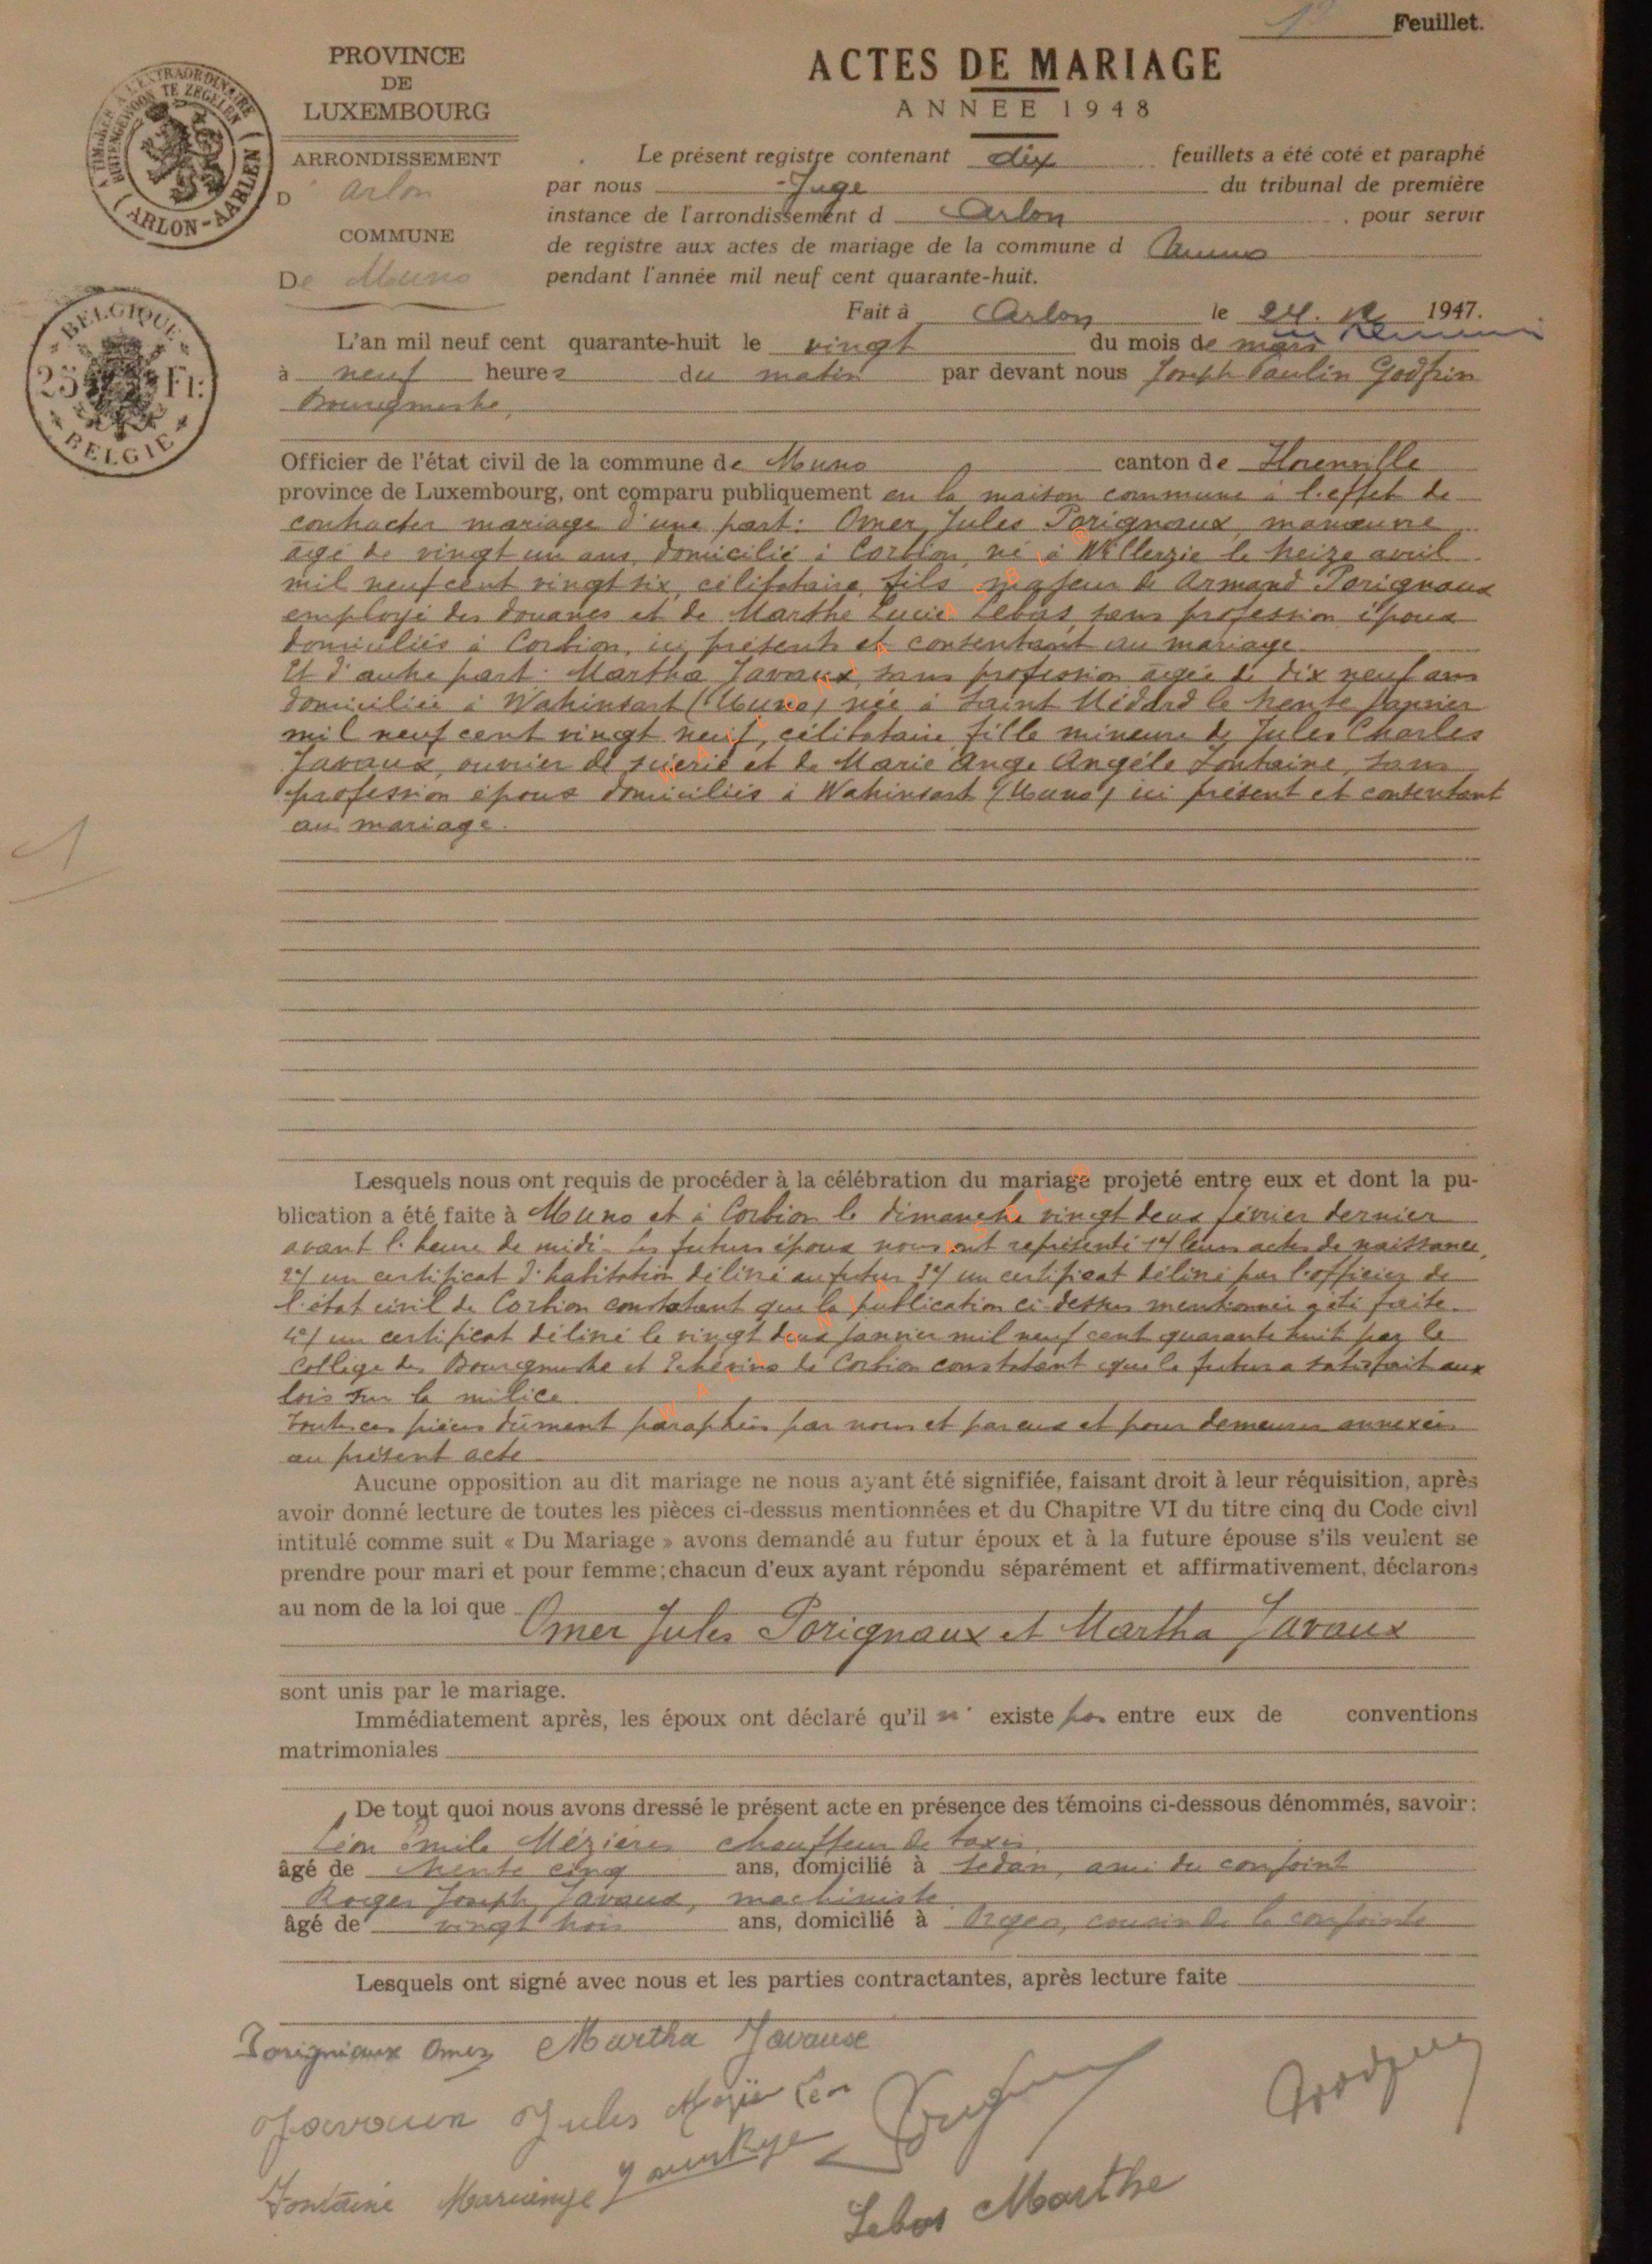 1 Feuillet.
PROVINCE
DE
LUXEMBOURG
ARRONDISSEMENT
D Arlon
COMMUNE
De Muno
A TIMBRER A L'EXTRAORDINAIRE
BUITENGEWOON TE ZEGELEN
ARLON-AARLEN
BELGIQUE
25 Fr.
BELGIE
ACTES DE MARIAGE
ANNEE 1948
Le présent registre contenant dix feuillets a été coté et paraphé
par nous Juge du tribunal de première
instance de l'arrondissement d Arlon, pour servir
de registre aux actes de mariage de la commune d Muno
pendant l'année mil neuf cent quarante-huit.
Fait à Arlon le 24. 1947.
L'an mil neuf cent quarante-huit le vingt du mois de mars
à neuf heures du matin par devant nous Joseph Paulin Godfrin
Bourgmestre,
Officier de l'état civil de la commune de Muno canton de Florenville
province de Luxembourg, ont comparu publiquement en la maison commune à l'effet de
contracter mariage d'une part: Omer, Jules Porignaux, manœuvre
âgé de vingt un ans, domicilié à Corbion, né à Willerzie le treize avril
mil neuf cent vingt six, célibataire, fils majeur de Armand Porignaux
employé des douanes et de Marthe Lucie Lebas, sans profession époux
domiciliés à Corbion, ici présents et consentant au mariage
Et d'autre part: Martha Javaux, sans profession âgée de dix neuf ans
domiciliée à Watrinsart (Muno) née à Saint Médard le trente janvier
mil neuf cent vingt neuf, célibataire fille mineure de Jules Charles
Javaux, ouvrier de scierie et de Marie Ange Angèle Fontaine, sans
profession époux domiciliés à Watrinsart (Muno) ici présent et consentant
au mariage.
1
Lesquels nous ont requis de procéder à la célébration du mariage projeté entre eux et dont la pu-
blication a été faite à Muno et à Corbion le dimanche vingt deux février dernier
avant l'heure de midi. Les futurs époux nous ont représenté 1°/ leurs actes de naissance,
2°/ un certificat d'habitation délivré au futur 3°/ un certificat délivré par l'officier de
l'état civil de Corbion constatant que la publication ci-dessus mentionnée a été faite.
4°/ un certificat délivré le vingt deux janvier mil neuf cent quarante huit par le
Collège des Bourgmestre et Echevins de Corbion constatant que le futur a satisfait aux
lois sur la milice.
Toutes ces pièces dûment paraphées par nous et par eux et pour demeurer annexées
au présent acte
Aucune opposition au dit mariage ne nous ayant été signifiée, faisant droit à leur réquisition, après
avoir donné lecture de toutes les pièces ci-dessus mentionnées et du Chapitre VI du titre cinq du Code civil
intitulé comme suit « Du Mariage » avons demandé au futur époux et à la future épouse s'ils veulent se
prendre pour mari et pour femme; chacun d'eux ayant répondu séparément et affirmativement, déclarons
au nom de la loi que Omer Jules Porignaux et Martha Javaux
sont unis par le mariage.
Immédiatement après, les époux ont déclaré qu'il n' existe pas entre eux de conventions
matrimoniales
De tout quoi nous avons dressé le présent acte en présence des témoins ci-dessous dénommés, savoir:
Léon Emile Mézières chauffeur de taxis
âgé de trente cinq ans, domicilié à Sedan, ami du conjoint
Roger Joseph Javaux, machiniste
âgé de vingt trois ans, domicilié à Orgeo, cousin de la conjointe
Lesquels ont signé avec nous et les parties contractantes, après lecture faite
Porigniaux Omer Martha Javaux
Javaux Jules Mézier Léon
Fontaine Mariange
Lebas Marthe